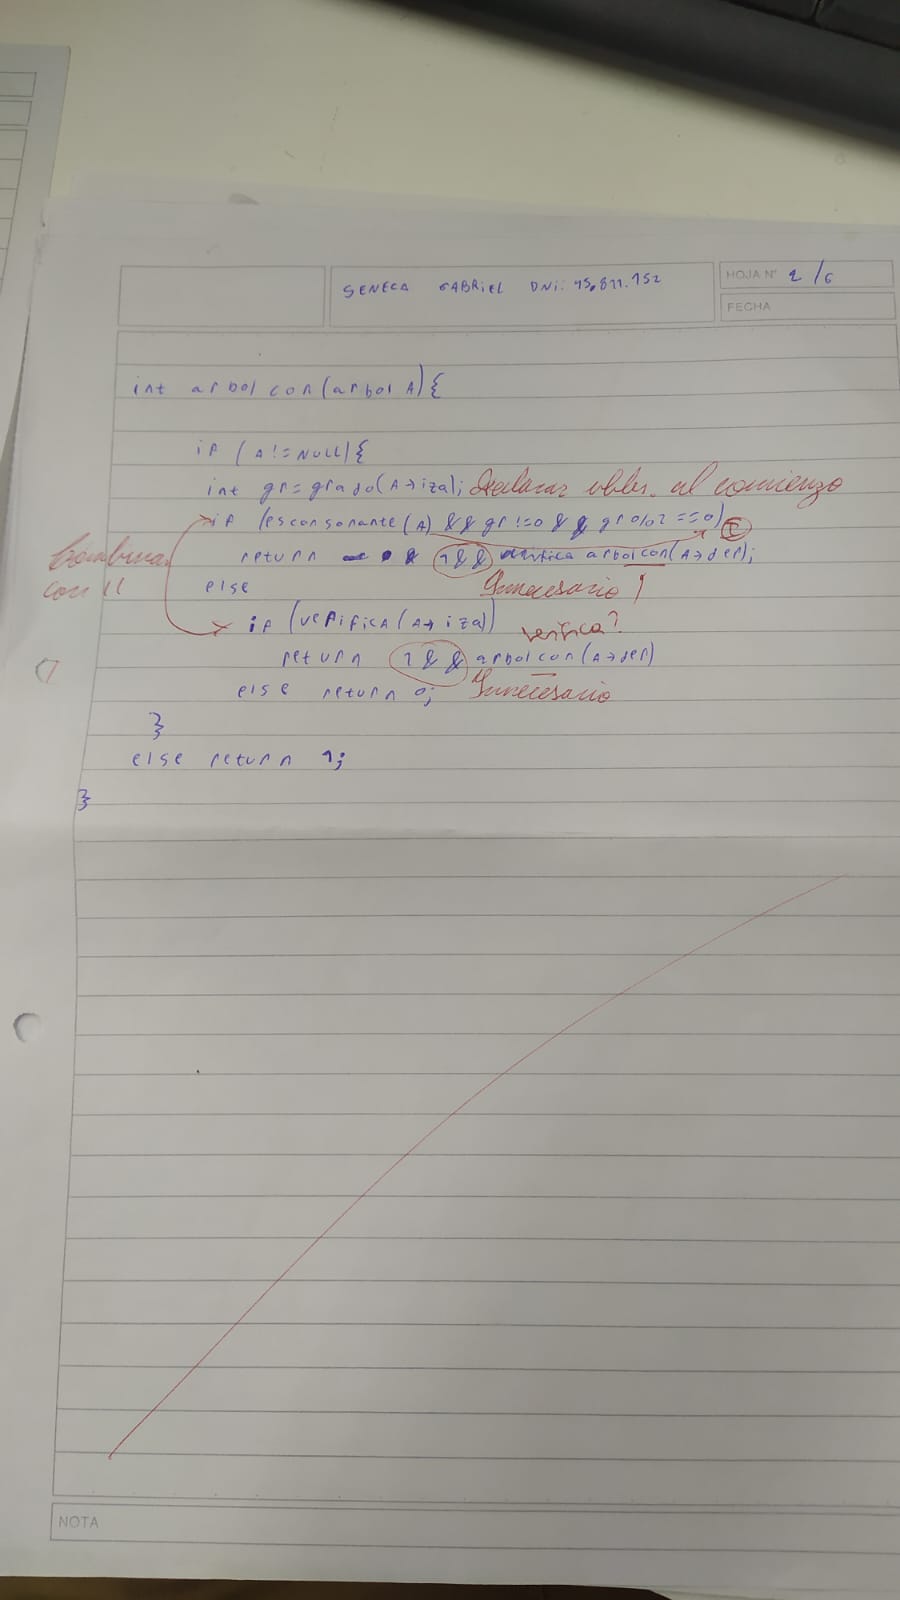 SENECA GABRIEL DNI: 45.811.152
HOJA N° 2/6
FECHA
int arbol con(arbol A){
if (A!=NULL){
int gr=grado(A→izq); Declarar vbles. al comienzo
if (esconsonante(A) && gr!=0 && gr%2==0)
return 1&& arbolcon(A→der);
Combinar
con ||
else Innecesario
if (verifica(A→izq)) verifica?
return 1&& arbolcon(A→der)
else return 0; Innecesario
}
else return 1;
}
NOTA